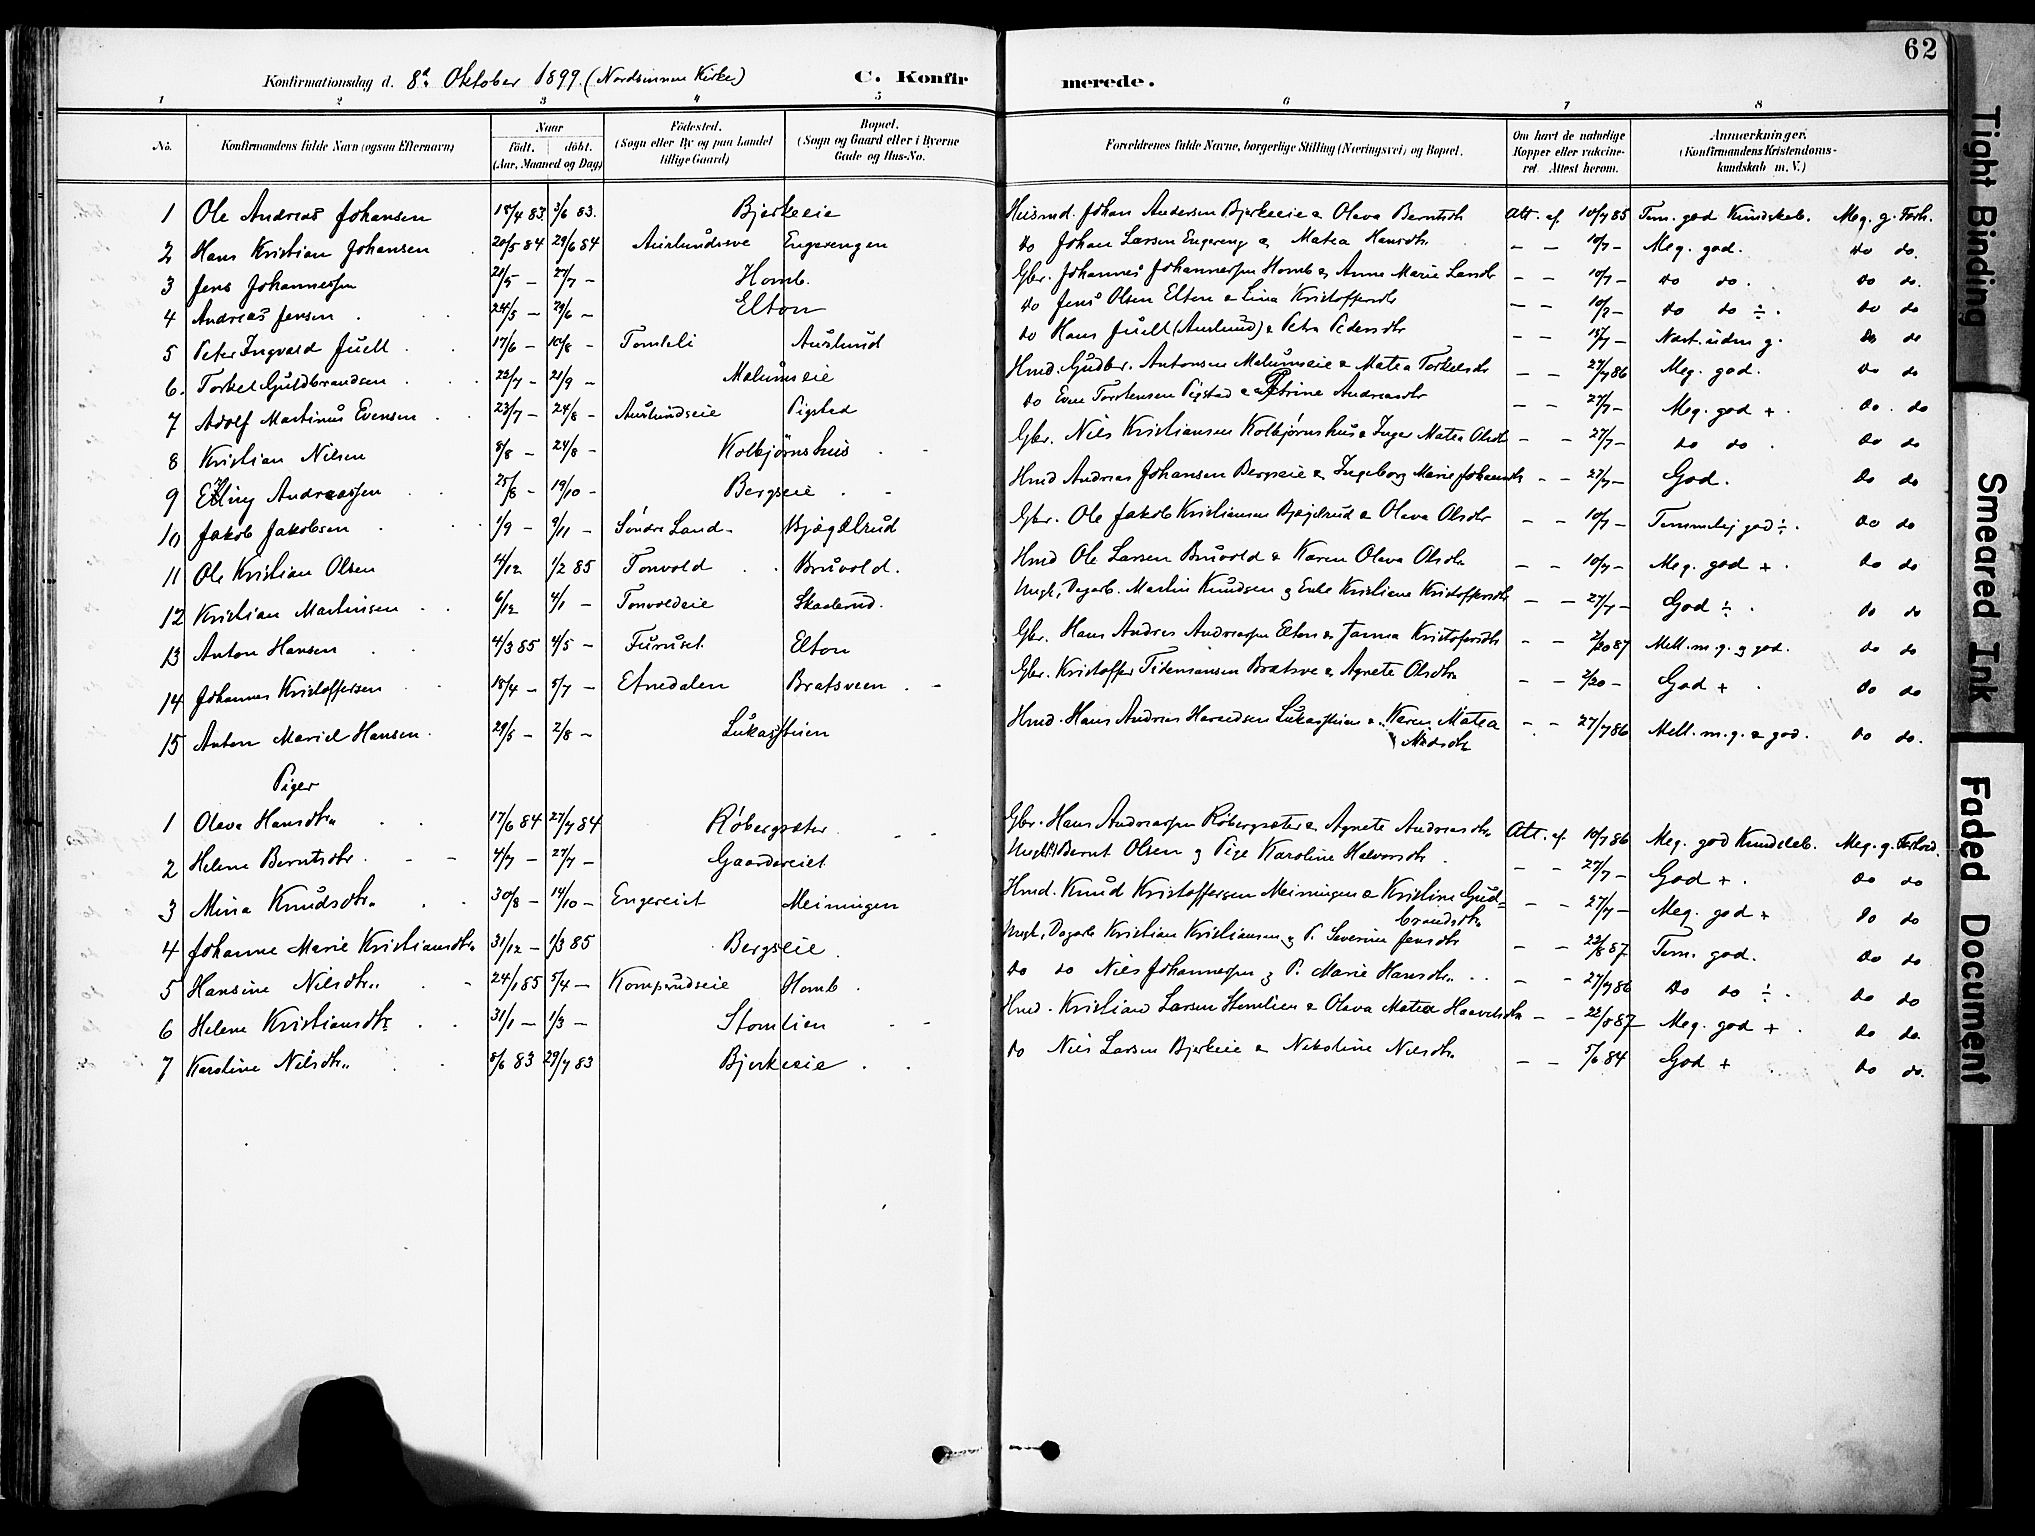 62
Konfirmationsdag d. 8de Oktober 1899. (Nordsinnen Kirke) C. Konfirmerede.
1 2 3 4 5 6 7 8
No. Konfirmandens fulde Navn (ogsaa Efternavn) Naar födt. döbt. (Aar, Maaned og Dag) Födested. (Sogn eller By og paa Landet tillige Gaard) Bopæl. (Sogn og Gaard eller i Byerne Gade og Hus-No. Forældrenes fulde Navne, borgerlige Stilling (Næringsvei) og Bopæl. Om havt de naturlige Kopper eller vakcineret. Attest herom. Anmærkninger. (Konfirmandens Kristendomskundskab m. V.)
1 Ole Andreas Johansen 18/4 83. 3/6 83. Bjerkeeie Husmd. Johan Andersen Bjerkeeie & Olava Berntsdtr Att. af 10/7 85 Tem. god Kundskab. Meg. g. Forh.
2 Hans Kristian Johansen 20/5 84 29/6 84 Auslundseie Engerengen do Johan Larsen Engereng & Matea Hansdtr. — — 10/7 — Meg. god. do do.
3 Jens Johannessen 21/5 — 27/7 — Homb. Gbr. Johannes Johannessen Homb & Anne Marie Larsdtr — — 10/7 — do do. do do.
4 Andreas Jensen 24/5 — 29/6 — Elton do Jens Olsen Elton & Lina Kristoffersdtr — — 10/7 — do do ÷. do do
5 Peter Ingvald Juell 17/6 — 10/8 — Tomleli Auslund do Hans Juell (Auslund) & Petra Pedersdtr — — 15/7 — Næst. uden g. do do
6. Torkel Guldbrandsen 22/7 — 21/9 — Malumseie Hmd. Gudbr. Antonsen Malumseie & Matea Torkelsdtr — — 27/7 86 Meg. god. do do
7 Adolf Martinus Evensen 23/7 — 24/8 — Auslundseie Pigsted do Even Torstensen Pigstad & Petrine Andreasdtr — — 27/7 — Meg. god + do. do
8 Kristian Nilsen 8/8 — 24/8 — Kolbjörnshus Gbr. Nils Kristiansen Kolbjørnshus & Inger Matea Olsdtr — — 27/7 — do do. do do
9 Elling Andreassen 25/8 — 19/10 — Bergseie Hmd Andreas Johansen Bergseie & Ingeborg Marie Johansdtr — — 27/7 — God. do do
10 Jakob Jakobsen 1/9 — 9/11 — Søndre Land — Bjøgelrud Gbr. Ole Jakob Kristiansen Bjøgelrud & Olava Olsdtr — — 10/7 — Temmelig god ÷. do do
11 Ole Kristian Olsen 14/12 1/2 85 Tonvold Bruvold. Hmd Ole Larsen Bruvold & Karen Olava Olsdtr — — 10/7 — Meg. god +. do do
12 Kristian Martinsen 6/12 4/1 — Tonvoldeie Skaalrud. Ungk., Dagarb. Martin Knudsen og Enke Kristiane Kristoffersdtr — — 27/7 — God ÷. do do
13 Anton Hansen 4/3 85 4/5 — Furuset Elton Gbr. Hans Andres Andreassen Elton & Janna Kristofersdtr — — 2/20 87 Mell. m. g. og god. do do
14 Johannes Kristoffersen 18/4 — 5/7 — Etnedalen Bratsveen Gbr. Kristoffer Bratsve & Agnete Olsdtr — — 2/20 — God + do do
15 Anton Mariel Hansen. 29/5 — 2/8 — Lukasstuen Hmd. Hans Andrias Lukasstuen & Karen Matea Nilsdtr — — 27/7 86 Mell. m. g. & god. do do.
Piger
1 Olava Hansdtr 17/6 84 27/7 84 Røbergsæter Gbr. Hans Andreassen Røbergsæter & Agnete Andreasdtr Att. af 10/7 86 Meg. god Kundskab. Meg. g. Forhold.
2 Helene Berntsdtr. 4/7 — 27/7 — Gaardereiet Ungk. Bernt Olsen og Pige Karoline Halvorsdtr. — — 27/7 — God +. do do
3 Mina Knudsdtr. 30/8 — 14/10 — Engereiet Meiningen Hmd. Knud Kristoffersen Meiningen & Kristine Gudbrandsdtr — — 27/7 — Meg. god + do do
4 Johanne Marie Kristiansdtr 31/12 — 1/3 85 Bergseie. Ungk., Dagarb Kristian Kristiansen og P. Severine Jensdtr — — 22/8 87 Tem. god. do do
5 Hansine Nilsdtr. 24/1 85 5/4 — Komperudseie Homb. do do Nils Johannessen og P. Marie Hansdtr. — — 27/7 86 do do ÷. do do
6 Helene Kristiansdtr 31/1 — 1/3 — Stomlien Hmd. Kristian Larsen Stomlien & Olava Matea Haavelsdtr — — 22/8 87 — Meg. god +. do do.
7 Karoline Nilsdtr. 8/6 83 29/7 83 Bjerkeeie do Nils Larsen Bjerkeie & Nikoline Nilsdtr — — 5/6 84 God + do do.
Tight Binding
Smeared Ink
Faded Document